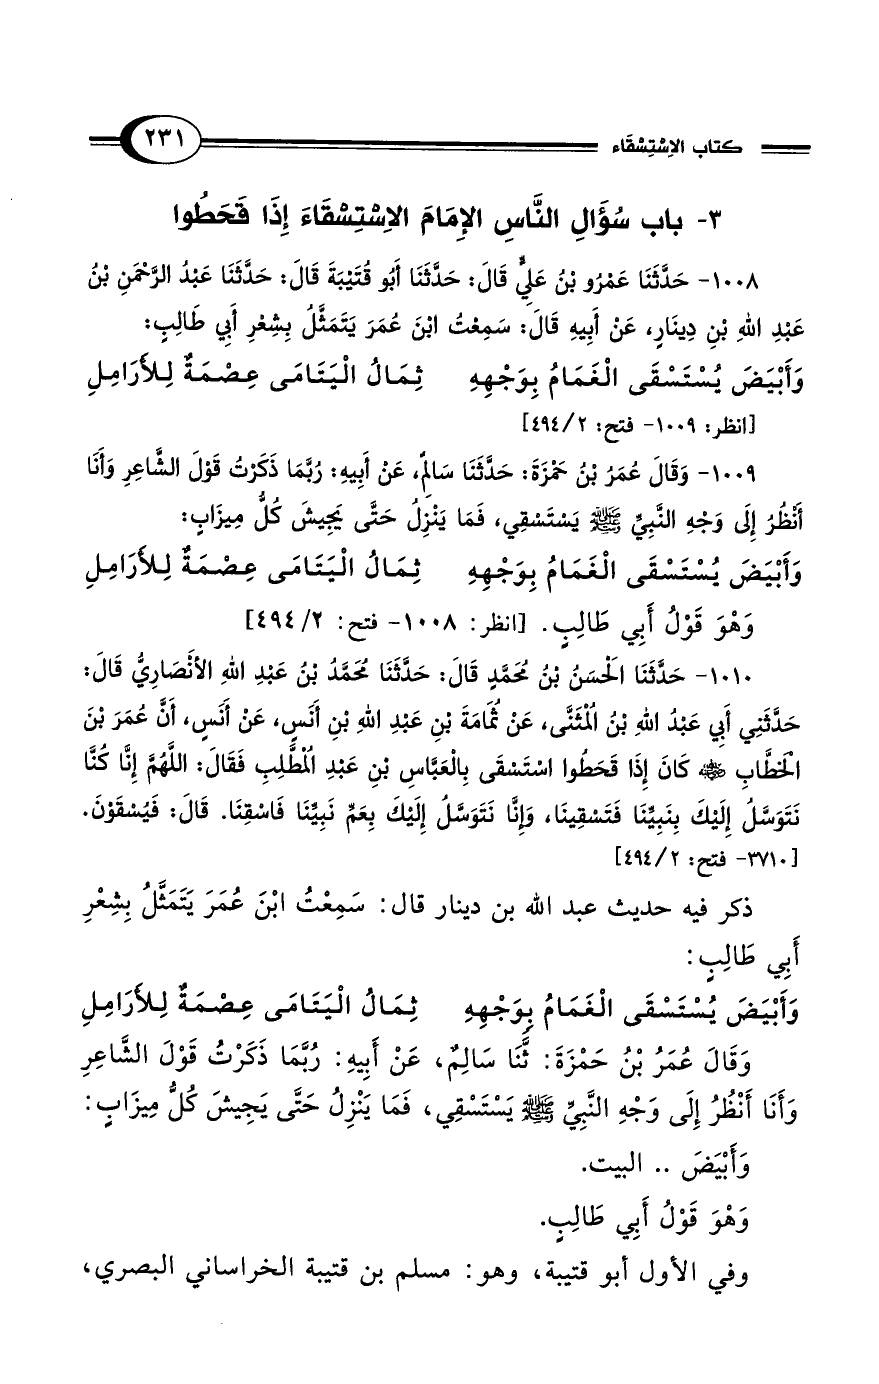 كتاب الاِسْتِسْقَاء
٢٣١
٣- باب سُؤَالِ النَّاسِ الإِمَامَ الاِسْتِسْقَاءَ إِذَا قَحَطُوا
١٠٠٨- حَدَّثَنَا عَمْرُو بْنُ عَلِيٍّ قَالَ: حَدَّثَنَا أَبُو قُتَيْبَةَ قَالَ: حَدَّثَنَا عَبْدُ الرَّحْمَنِ بْنُ
عَبْدِ اللهِ بْنِ دِينَارٍ، عَنْ أَبِيهِ قَالَ: سَمِعْتُ ابْنَ عُمَرَ يَتَمَثَّلُ بِشِعْرِ أَبِي طَالِبٍ:
وَأَبْيَضَ يُسْتَسْقَى الْغَمَامُ بِوَجْهِهِ ثِمَالُ الْيَتَامَى عِصْمَةٌ لِلأَرَامِلِ
[انظر: ١٠٠٩- فتح: ٢/ ٤٩٤]
١٠٠٩- وَقَالَ عُمَرُ بْنُ حَمْزَةَ: حَدَّثَنَا سَالِمٌ، عَنْ أَبِيهِ: رُبَّمَا ذَكَرْتُ قَوْلَ الشَّاعِرِ وَأَنَا
أَنْظُرُ إِلَى وَجْهِ النَّبِيِّ ﷺ يَسْتَسْقِي، فَمَا يَنْزِلُ حَتَّى يَجِيشَ كُلُّ مِيزَابٍ:
وَأَبْيَضَ يُسْتَسْقَى الْغَمَامُ بِوَجْهِهِ ثِمَالُ الْيَتَامَى عِصْمَةٌ لِلأَرَامِلِ
وَهْوَ قَوْلُ أَبِي طَالِبٍ. [انظر: ١٠٠٨- فتح: ٢/ ٤٩٤]
١٠١٠- حَدَّثَنَا الْحَسَنُ بْنُ مُحَمَّدٍ قَالَ: حَدَّثَنَا مُحَمَّدُ بْنُ عَبْدِ اللهِ الأَنْصَارِيُّ قَالَ:
حَدَّثَنِي أَبِي عَبْدُ اللهِ بْنُ الْمُثَنَّى، عَنْ ثُمَامَةَ بْنِ عَبْدِ اللهِ بْنِ أَنَسٍ، عَنْ أَنَسٍ، أَنَّ عُمَرَ بْنَ
الْخَطَّابِ ﵁ كَانَ إِذَا قَحَطُوا اسْتَسْقَى بِالْعَبَّاسِ بْنِ عَبْدِ الْمُطَّلِبِ فَقَالَ: اللَّهُمَّ إِنَّا كُنَّا
نَتَوَسَّلُ إِلَيْكَ بِنَبِيِّنَا فَتَسْقِينَا، وَإِنَّا نَتَوَسَّلُ إِلَيْكَ بِعَمِّ نَبِيِّنَا فَاسْقِنَا. قَالَ: فَيُسْقَوْنَ.
[٣٧١٠- فتح: ٢/ ٤٩٤]
ذكر فيه حديث عبد الله بن دينار قال: سَمِعْتُ ابْنَ عُمَرَ يَتَمَثَّلُ بِشِعْرِ
أَبِي طَالِبٍ:
وَأَبْيَضَ يُسْتَسْقَى الْغَمَامُ بِوَجْهِهِ ثِمَالُ الْيَتَامَى عِصْمَةٌ لِلأَرَامِلِ
وَقَالَ عُمَرُ بْنُ حَمْزَةَ: ثَنَا سَالِمٌ، عَنْ أَبِيهِ: رُبَّمَا ذَكَرْتُ قَوْلَ الشَّاعِرِ
وَأَنَا أَنْظُرُ إِلَى وَجْهِ النَّبِيِّ ﷺ يَسْتَسْقِي، فَمَا يَنْزِلُ حَتَّى يَجِيشَ كُلُّ مِيزَابٍ:
وَأَبْيَضَ .. البيت.
وَهْوَ قَوْلُ أَبِي طَالِبٍ.
وفي الأول أبو قتيبة، وهو: مسلم بن قتيبة الخراساني البصري،